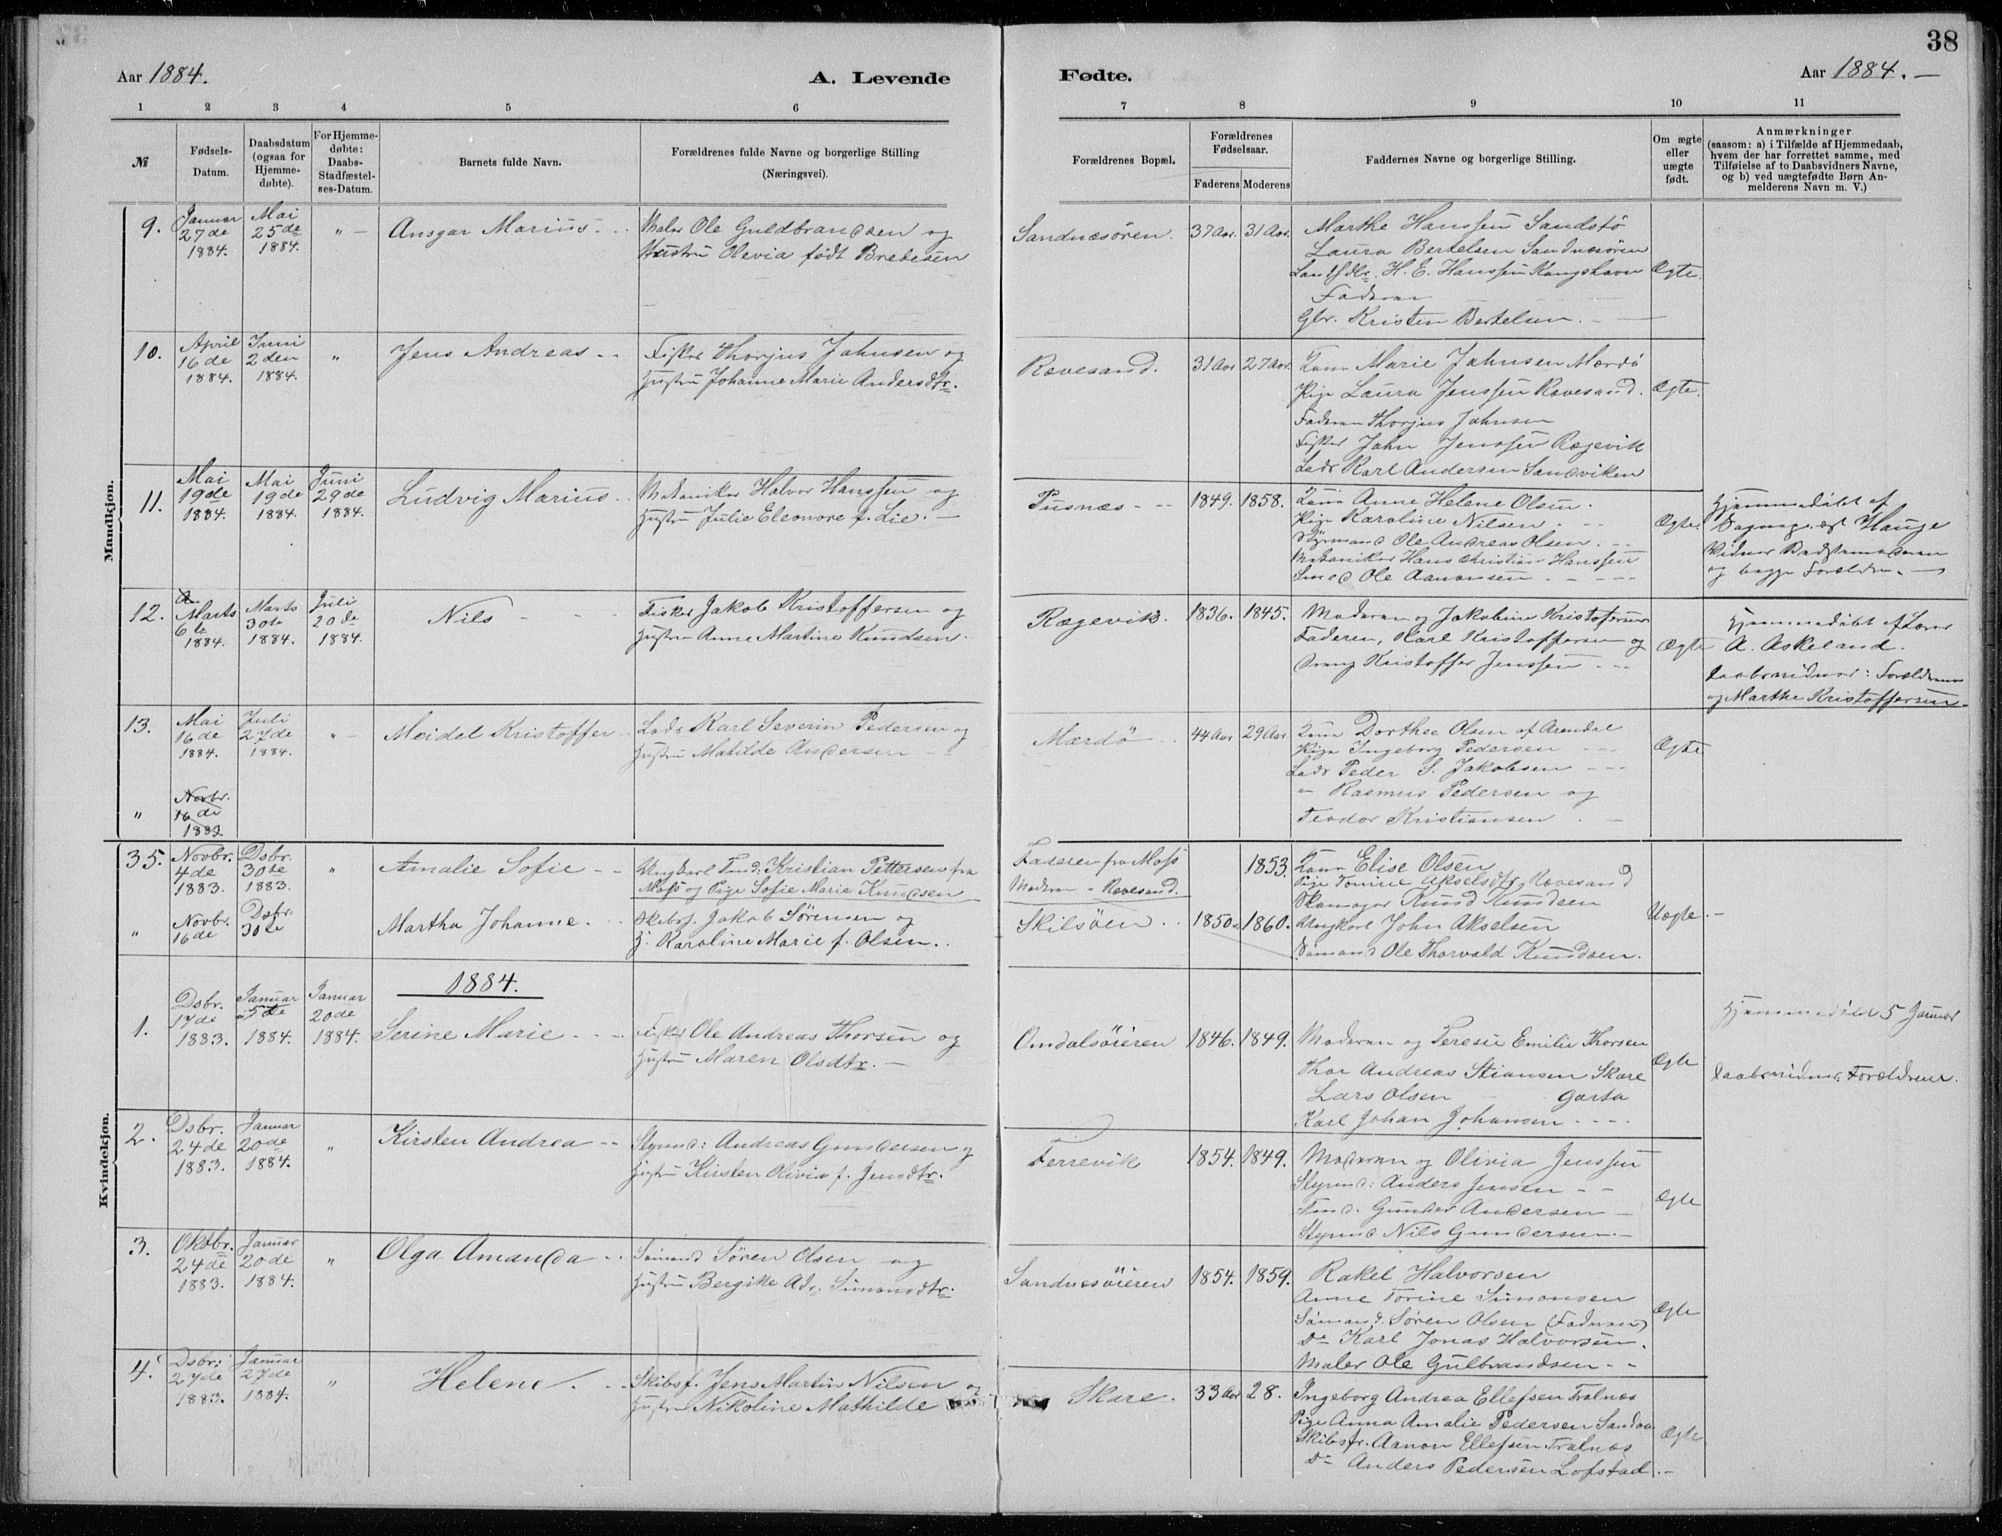 38
Aar 1884.
A. Levende
Fødte.
Aar 1884. —
1 2 3 4 5 6 7 8 9 10 11
№
Fødsels-
Datum.
Daabsdatum
(ogsaa for
Hjemme-
døbte).
For Hjemme-
døbte:
Daabs-
Stadfæstel-
ses-Datum.
Barnets fulde Navn.
Forældrenes fulde Navne og borgerlige Stilling
(Næringsvei).
Forældrenes Bopæl.
Forældrenes
Fødselsaar.
Faderens Moderens
Faddernes Navne og borgerlige Stilling.
Om ægte
eller
uægte
født.
Anmærkninger
(saasom: a) i Tilfælde af Hjemmedaab,
hvem der har forrettet samme, med
Tilføielse af to Daabsvidners Navne,
og b) ved uægtefødte Børn An-
melderens Navn m. V.)
Mandkjøn.
9.
Januar
27de
1884.
Mai
25de
1884.
" —
Ansgar Marius
Maler Ole Guldbrandsen og
Hustru Olevia født Bredesen
Sandnæsören.
37 Aar.
31 Aar.
Marthe Hanssen Sandstø
Laura Bertelsen Sandnæsören
H. E. Hanssen Kongshavn
Faderen
Gbr. Kristen Bertelsen.
Ægte.
10.
April
16de
1884.
Juni
2den
1884.
"
Jens Andreas
Fisker Thorjus Johnsen og
Hustru Johanne Marie Andersdtr.
Rævesand.
31 Aar
27 Aar.
Kone Marie Johnsen Mærdö
Pige Laura Jenssen Rævesand.
Faderen Thorjus Johnsen
Fisker John Jenssen Rægevik
Lods Karl Andersen Sandviken
Ægte.
11.
Mai
19de
1884.
Mai
19de
1884.
Juni
29de
1884.
Ludvig Marius
Mekaniker Halvor Hanssen og
Hustru Julie Eleonore f. Lie. —
Pusnæs
1849.
1858.
Kone Anne Helene Olsen.
Pige Karoline Nilsen.
Styrmand Ole Andreas Olsen.
Mekaniker Hans Christian Hanssen
Smed Ole Aanonsen
Ægte.
Hjemmedöbt af
Hauge
Vidner
og begge Forældre.
12.
Marts
6te
1884.
Marts
30te
1884.
Juli
20de
1884.
Nils
Fisker Jakob Kristoffersen og
Hustru Anne Martine Knudsen.
Rægevik.
1836.
1845.
Moderen og Jakobine Kristofersen
Faderen, Karl Kristoffersen og
Dreng Kristoffer Jenssen
Ægte
Hjemmedöbt af Lærer
A. Askeland.
Daabsvidner: Forældrene
og Marthe Kristoffersen.
13.
Mai
16de
1884.
Juli
27de
1884.
" —
Meidel Kristoffer
Lods Karl Severin Pedersen og
Hustru Mathilde Andersen
Mærdö
44 Aar
29 Aar.
Kone Dorthee Olsen af Arendal
Pige Ingeborg Pedersen
Lods Peder S. Jakobsen
" Rasmus Pedersen og
Teodor Kristiansen
Ægte
"
Novbr.
16de
1883
35.
Novbr.
4de
1883.
Dsbr.
30te
1883.
"
Amalie Sofie
Ungkarl Tmd. Kristian Pettersen fra
Moss og Pige Sofie Marie Knudsen
Faderen fra Moss
Moderen " Rævesand.
1853.
Kone Elise Olsen
Pige Tomine Akselsdtr, Rævesand
Skomager Knud Knudsen
Ungkarl John Akselsen
Sömand Ole Thorvald Knudsen.
Uægte
"
Novbr.
16de
Dsbr.
30te
Martha Johanne.
Skibsf. Jakob Sörensen og
H. Karoline Marie f. Olsen.
Skilsöen
1850.
1860.
1884.
Kvindekjøn.
1.
Dsbr.
17de
1883.
Januar
5de
1884.
Januar
20de
1884.
Serine Marie
Fisker Ole Andreas Thorsen og
Hustru Maren Olsdtr. —
Omdalsöieren
1846.
1849.
Moderen og Teresie Emilie Thorsen
Thor Andreas Stiansen Skare
Lars Olsen Garta
Karl Johan Johansen
Ægte
Hjemmedöbt 5 Januar
Daabsvidner, Forældrene.
2.
Dsbr.
24de
1883.
Januar
20de
1884.
"
Kirsten Andrea
Styrmd: Andreas Gundersen og
Hustru Kirsten Olivia f. Jensdtr.
Færrevik
1854.
1849.
Moderen og Olivia Jenssen
Styrmd: Anders Jensen
Tmd. Gunder Andersen
Styrmd Nils Gundersen.
Ægte
3.
Oktbr.
24de
1883.
Januar
20de
1884.
"
Olga Amanda
Sömand Sören Olsen og
Hustru Bergitte Adr. Simonsdtr.
Sandnesöieren
1854.
1859.
Rakel Halvorsen
Anne Torine Simonsen
Sömand. Sören Olsen (Faderen)
Do Karl Jonas Halvorsen.
Maler Ole Gulbrandsen
Ægte
4.
Dsbr:
27de
1883.
Januar
27de
1884.
"
Helene.
Skibsf. Jens Martin Nilsen og
Hustru Nikoline Mathilde
Skare.
33 Aar
28.
Ingeborg Andrea Ellefsen Tralnæs
Pige Anna Amalie Pedersen
Skibsfr. Aanon Ellefsen Tralnæs
Do Anders Pedersen Lofstad.
Ægte